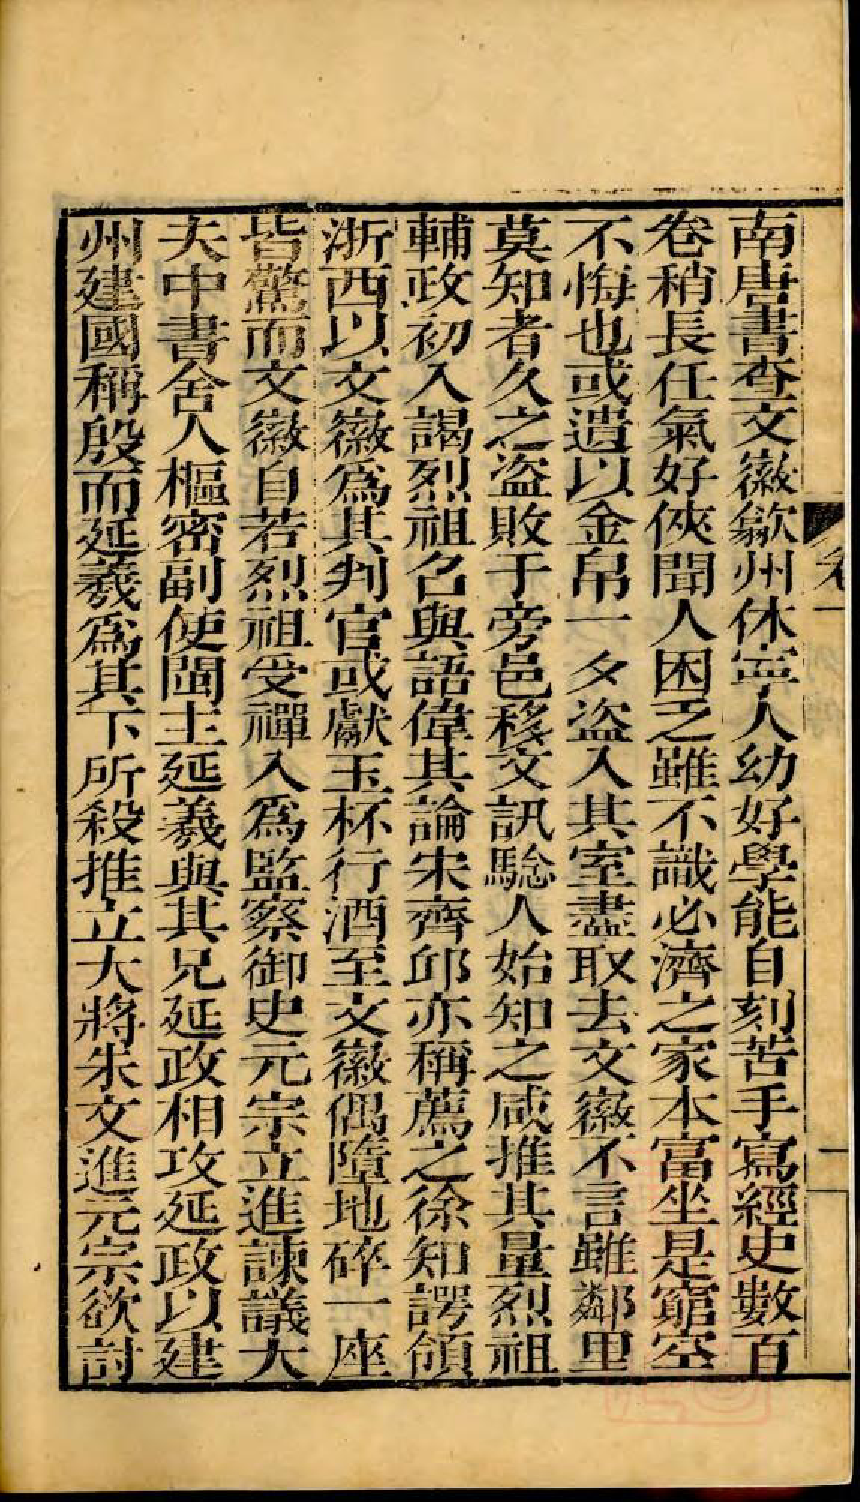 南唐書查文徽歙州休寧人幼好學能自刻苦手寫經史數百
卷稍長任氣好俠聞人困乏雖不識必濟之家本富坐是窮空
不悔也或遺以金帛一夕盜入其室盡取去文徽不言雖鄰里
莫知者久之盜敗于旁邑移文訊驗人始知之咸推其量烈祖
輔政初入謁烈祖召與語偉其論宋齊邱亦稱薦之徐知諤領
浙西以文徽爲其判官或獻玉杯行酒至文徽偶墮地碎一座
皆驚而文徽自若烈祖受禪入爲監察御史元宗立進諫議大
夫中書舍人樞密副使閩主延羲與其兄延政相攻延政以建
州建國稱殷而延羲爲其下所殺推立大將朱文進元宗欲討
卷一
一